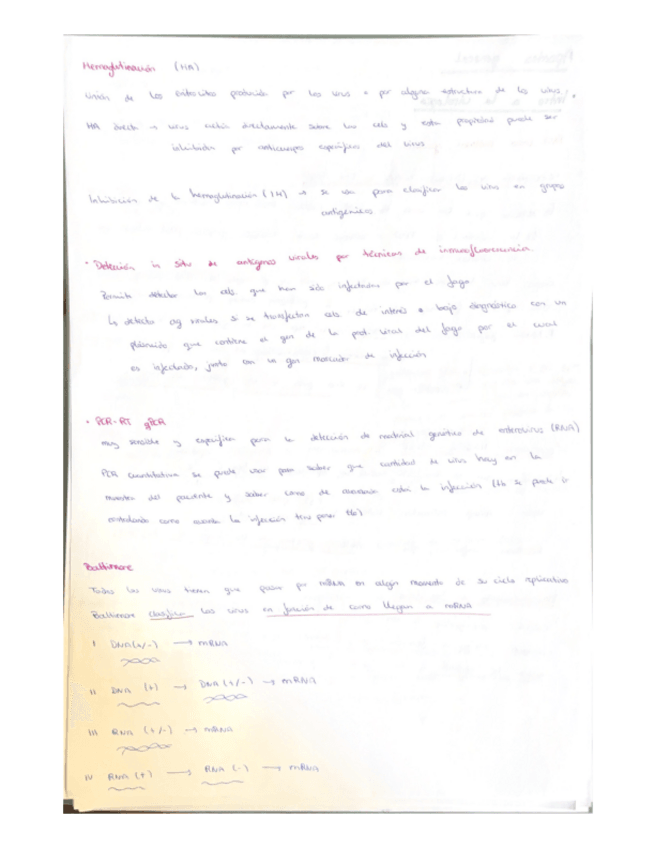 Hemaglutinación (HA)
Unión de los eritrocitos producida por los virus o por alguna estructura de los virus.
HA directa → virus actúa directamente sobre las cels y esta propiedad puede ser
inhibida por anticuerpos específicos del virus
Inhibición de la hemaglutinación (IH) → se usa para clasificar los virus en grupos
antigénicos
· Detección in situ de antígenos virales por técnicas de inmunofluorescencia.
Permite detectar las cels que han sido infectadas por el fago
↳ detecta ag virales si se transfectan cels de interés o bajo diagnóstico con un
plásmido que contiene el gen de la prot. viral del fago por el cual
es infectado, junto con un gen marcador de infección
· PCR-RT qPCR
muy sensible y específica para la detección de material genético de enterovirus (RNA)
PCR cuantitativa se puede usar para saber que cantidad de virus hay en la
muestra del paciente y saber como de avanzada está la infección (tb se puede ir
controlando como avanza la infección tras poner tto)
Baltimore
Todos los virus tienen que pasar por mRNA en algún momento de su ciclo replicativo
Baltimore clasifica los virus en función de como llegan a mRNA
I DNA (+/-) → mRNA
II DNA (+) → DNA (+/-) → mRNA
III RNA (+/-) → mRNA
IV RNA (+) → RNA (-) → mRNA